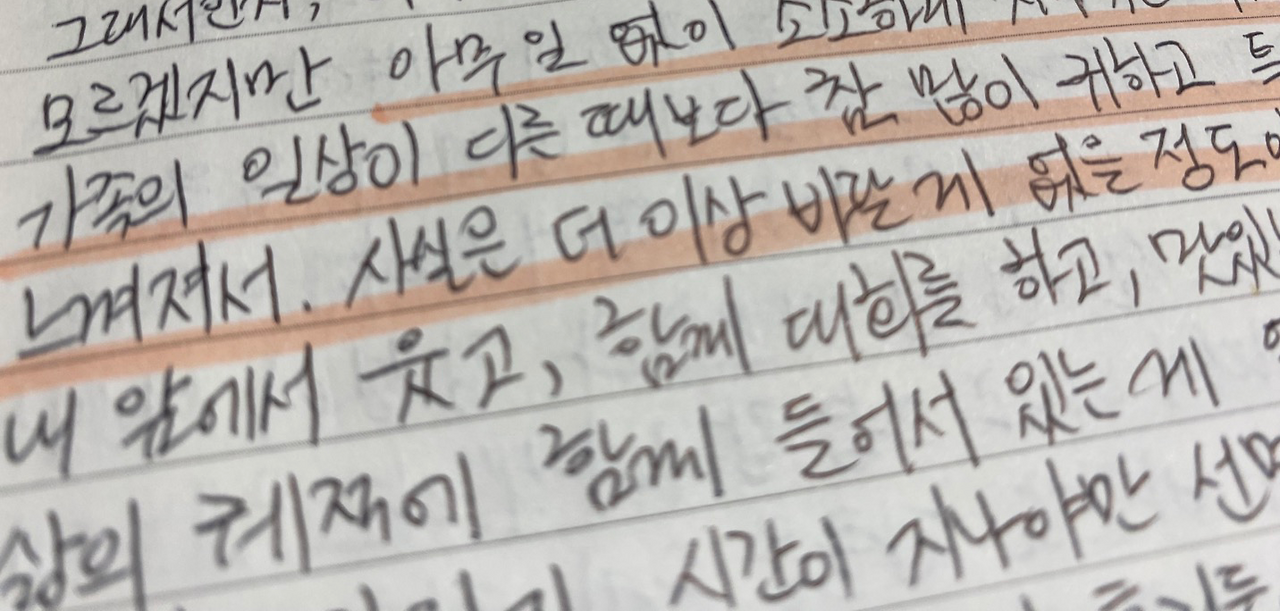 그래서인지,
모르겠지만 아무 일 없이 소소하게
가족의 일상이 다른 때보다 참 많이 귀하고
느껴져서. 사실은 더 이상 바랄 게 없는 정도
내 앞에서 웃고, 함께 대화를 하고, 맛있
삶의 궤적에 함께 들어서 있는 게
시간이 지나야만